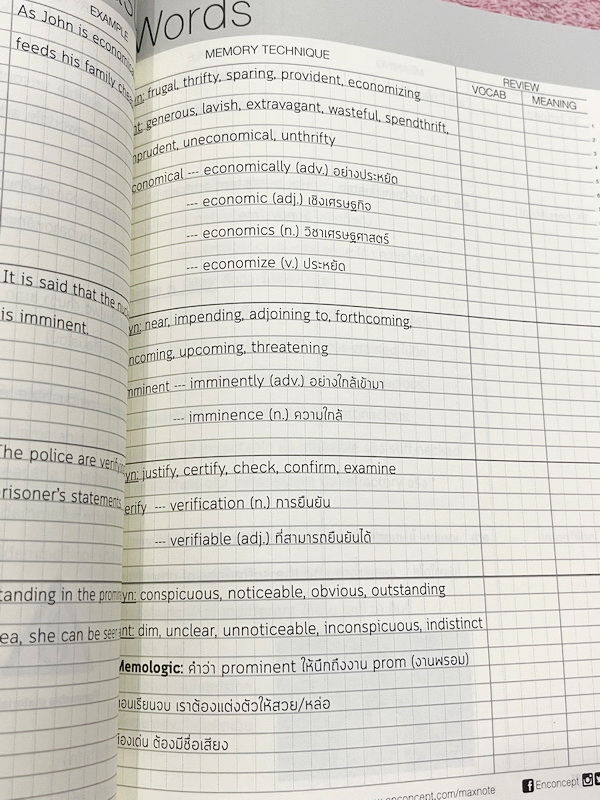 EXAMPLE
As John is economical
feeds his family
It is said that the
is imminent.
The police are verifying
prisoner's statements
standing in the
sea, she can be seen
Words
MEMORY TECHNIQUE
REVIEW
VOCAB
MEANING
syn: frugal, thrifty, sparing, provident, economizing
ant: generous, lavish, extravagant, wasteful, spendthrift,
imprudent, uneconomical, unthrifty
economical --- economically (adv.) อย่างประหยัด
--- economic (adj.) เชิงเศรษฐกิจ
--- economics (n.) วิชาเศรษฐศาสตร์
--- economize (v.) ประหยัด
syn: near, impending, adjoining to, forthcoming,
incoming, upcoming, threatening
imminent --- imminently (adv.) อย่างใกล้เข้ามา
--- imminence (n.) ความใกล้
syn: justify, certify, check, confirm, examine
verify --- verification (n.) การยืนยัน
--- verifiable (adj.) ที่สามารถยืนยันได้
syn: conspicuous, noticeable, obvious, outstanding
ant: dim, unclear, unnoticeable, inconspicuous, indistinct
Memologic: คำว่า prominent ให้นึกถึงงาน prom (งานพรอม)
ตอนเรียนจบ เราต้องแต่งตัวให้สวย/หล่อ
ต้องเด่น ต้องมีชื่อเสียง
enconcept.com/maxnote
Enconcept